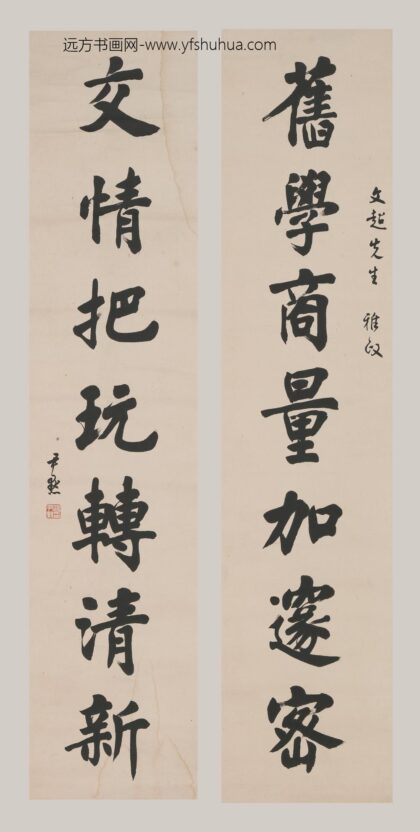 远方书画网-www.yfshuhua.com
文超先生 雅政
舊學商量加邃密
文情把玩轉清新
尹默